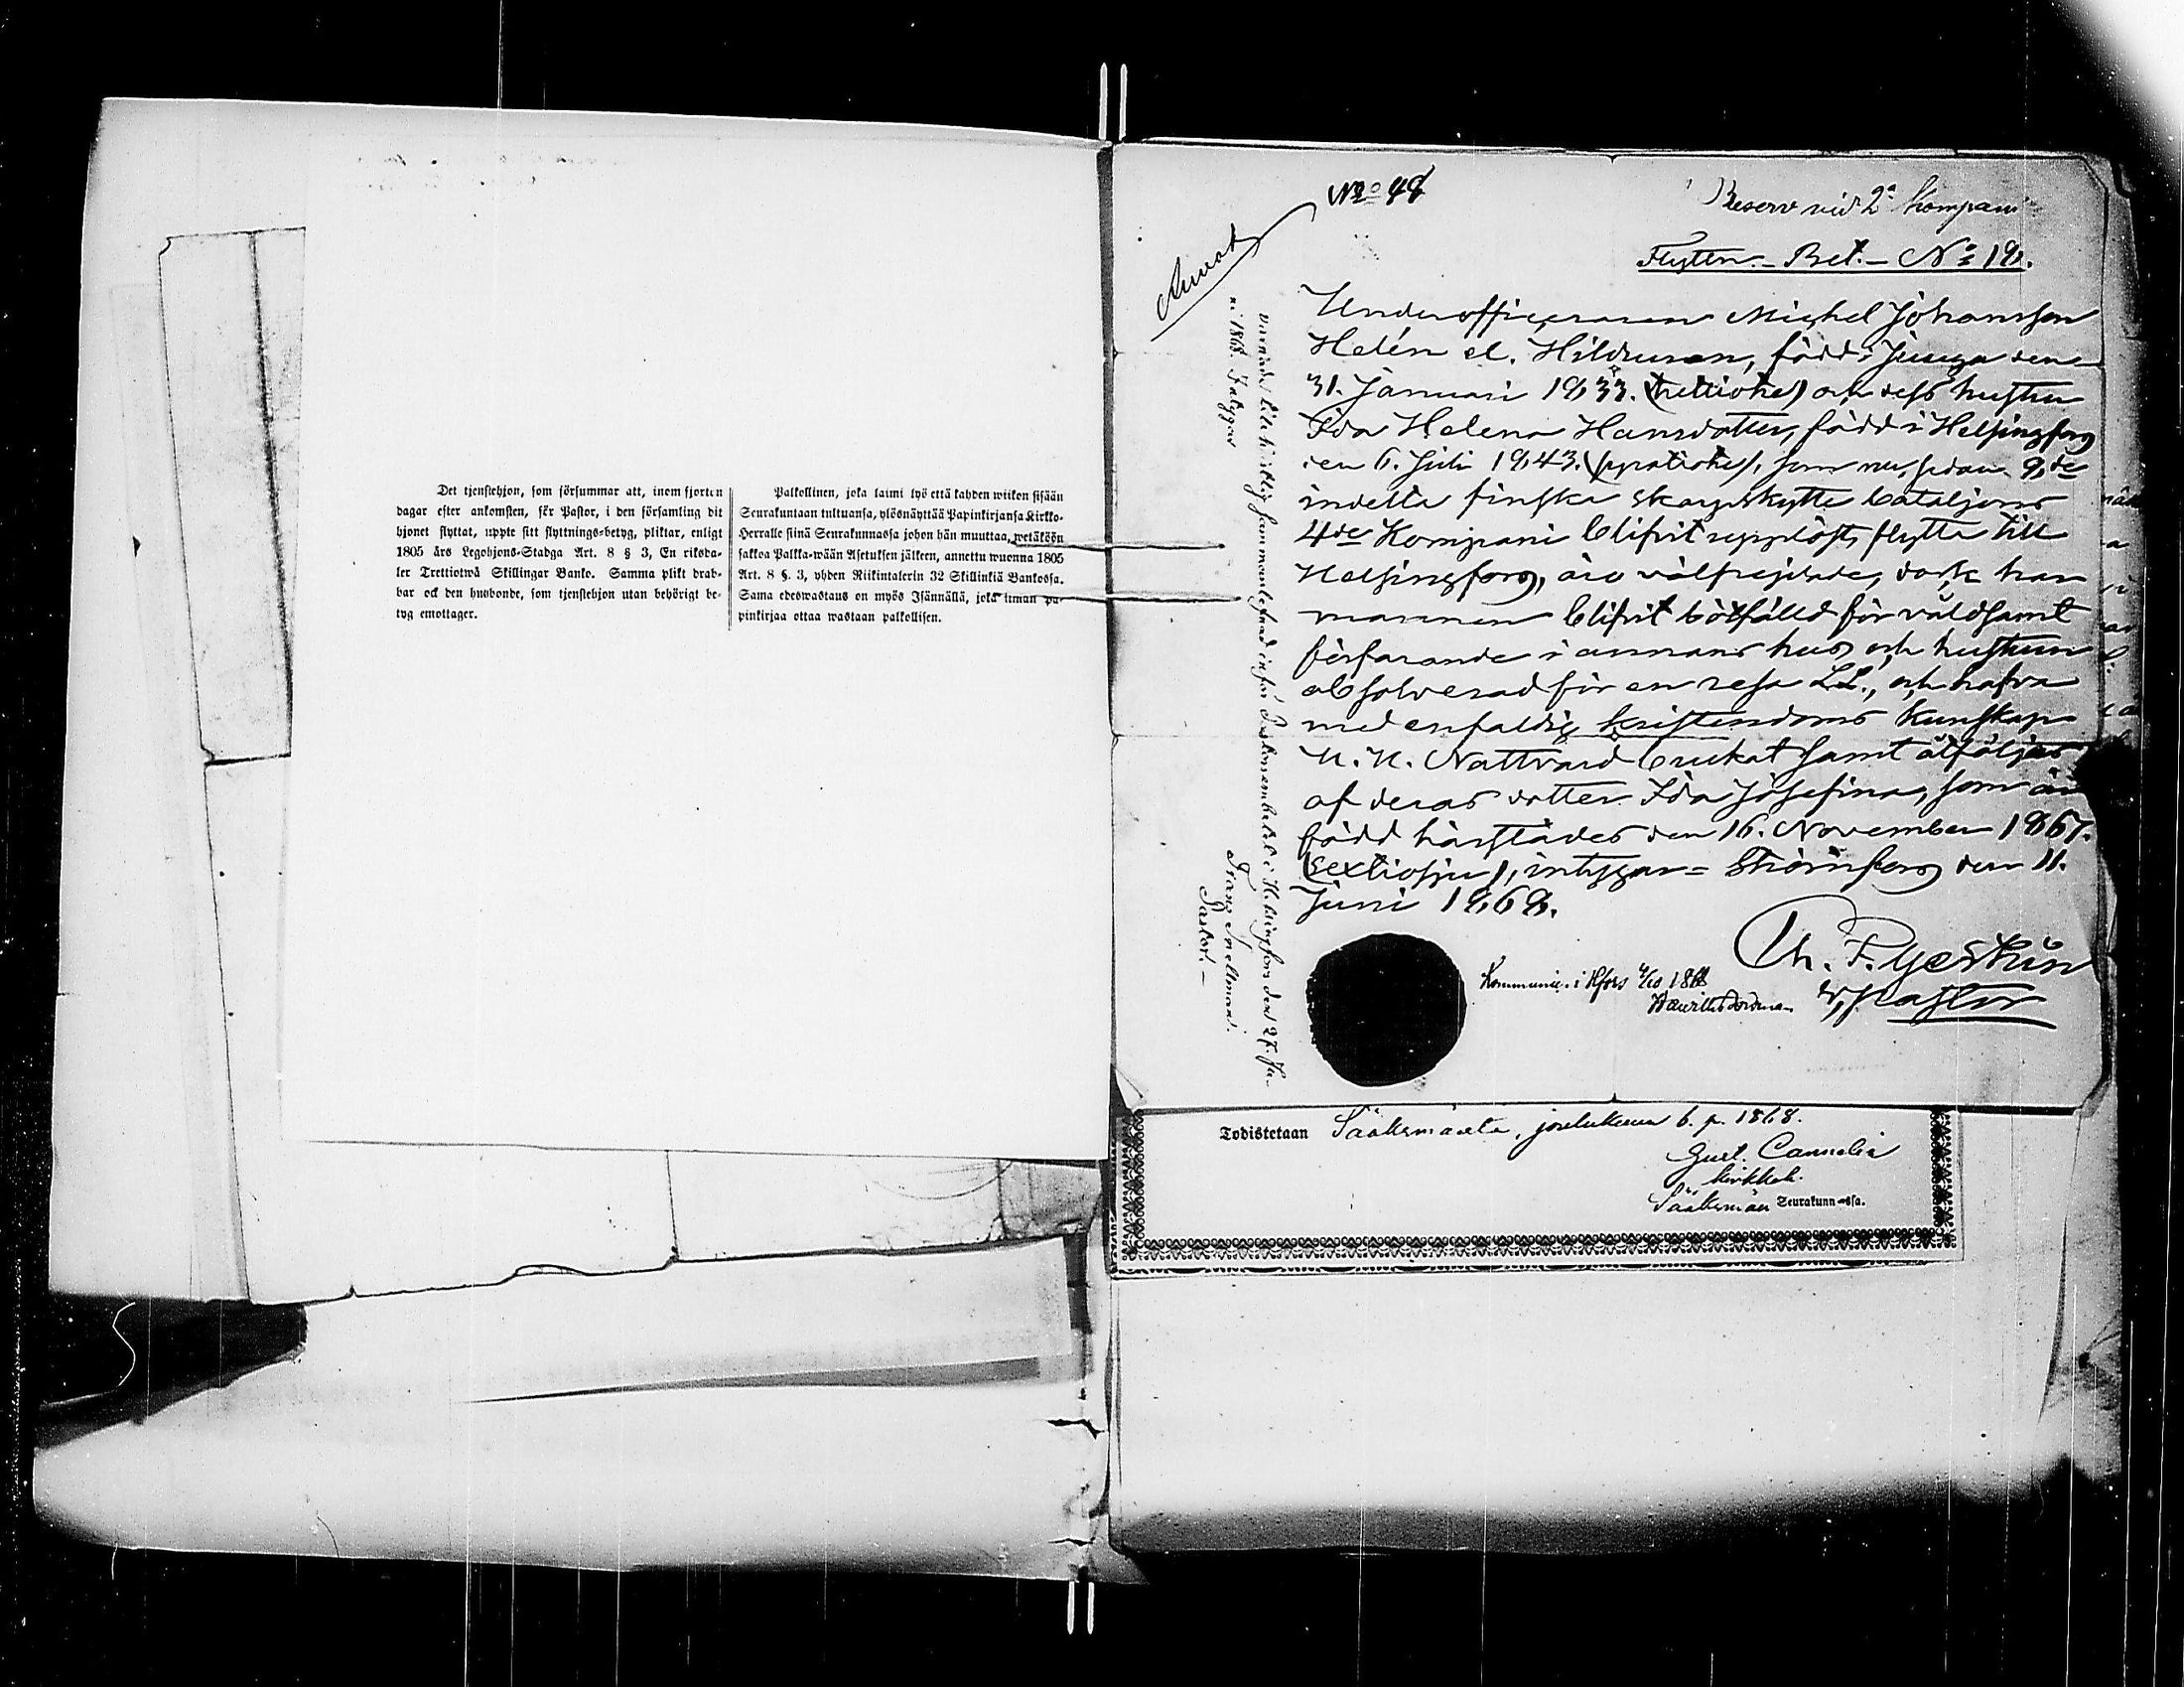 Det tjenstehjon, som försummar att, inom fjorten
dagar efter ankomsten, för Pastor, i den församling dit
hjonet flyttat, uppte sitt flyttnings-betyg, pliktar, enligt
1805 års Legohjons-Stadga Art. 8 § 3, En riksda-
ler Trettiotwå Skillingar Banko. Samma plikt drab-
bar ock den husbonde, som tjenstehjon utan behörigt be-
tyg emottager.
Palkollinen, joka laimi lyö että kahden wiikon sisään
Seurakuntaan tultuansa, ylösnäyttää Papinkirjansa Kirkko-
Herralle siinä Seurakunnassa johon hän muuttaa, wetäköön
sakkoa Palkka-wään Asetuksen jälkeen, annettu wuonna 1805
Art. 8 §. 3, yhden Riikintalerin 32 Skillinkiä Bankossa.
Sama edeswastaus on myös Isännällä, joka ilman pa-
pinkirjaa ottaa wastaan palkollisen.
No 48
Reserv vid 2a Kompani
Flyttn.- Bet.- No 18.
Underofficeraren Michel Johansson
Helén el. Hildunen, född i Juuga den
31. Januari 1833. (trettiotre) och dess hustru
Ida Helena Hansdotter, född i Helsingfors
den 6. Juli 1843. (fyratiotre), som nu, sedan 9,de
indelta finska skarpskytte bataljons
4de Kompani blifvit upplöst, flytta till
Helsingfors, äro välfrejdade, dock har
mannen blifvit botfälld för våldsamt
förfarande i annans hus och hustrun
absolverad för en resa LL., och hafva
med enfaldig kristendoms kunskap
H. H. Nattvard brukat samt åtföljas
af deras dotter Ida Josefina, som är
född härstädes den 16. November 1867.
(sextiosju), intygar = Strömfors den 11.
Juni 1868.
v, Pastor
Kommunic. i Hfors 4/10 1868
Todistetaan Sääksmäeltä, joulukuun 6. p. 1868.
Gust. Cannelin
kirkkoh.
Sääksmäen Seurakunn-ssa.
i Helsingfors den 27. Ju-
ni 1868. Intygar
Frans Snellman.
Pastor.-